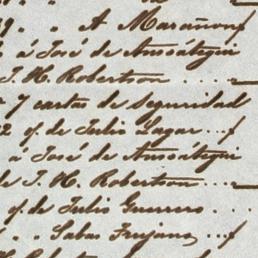 19 „ „ A Marañon f
" á José de Amoátegui
" J. H. Robertson
" 7 cartas de Seguridad
22 of. de Julio Lagar ... f
á José de Amoátegui
de J. H. Robertson ...
of. de Julio Guerrero ....
" „ „ Sabas Trujano, f